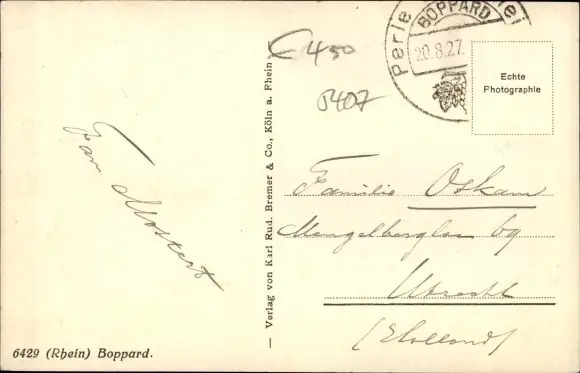 Perle
BOPPARD
20.8.27.
Echte
Photographie
€ 450
5407
Verlag von Karl Rud. Bremer & Co., Köln a. Rhein
Familie Oskam
Mengelberglaan 69
Utrecht
(Holland)
Jan Mostert
6429 (Rhein) Boppard.